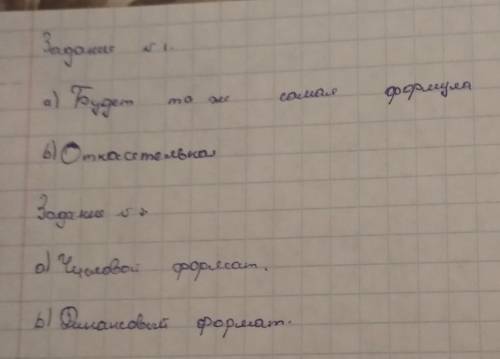 Задание №1.
а) Будет та же самая формула
b) Относительная
Задание №2
а) Числовой формат.
b) Финансовый формат.